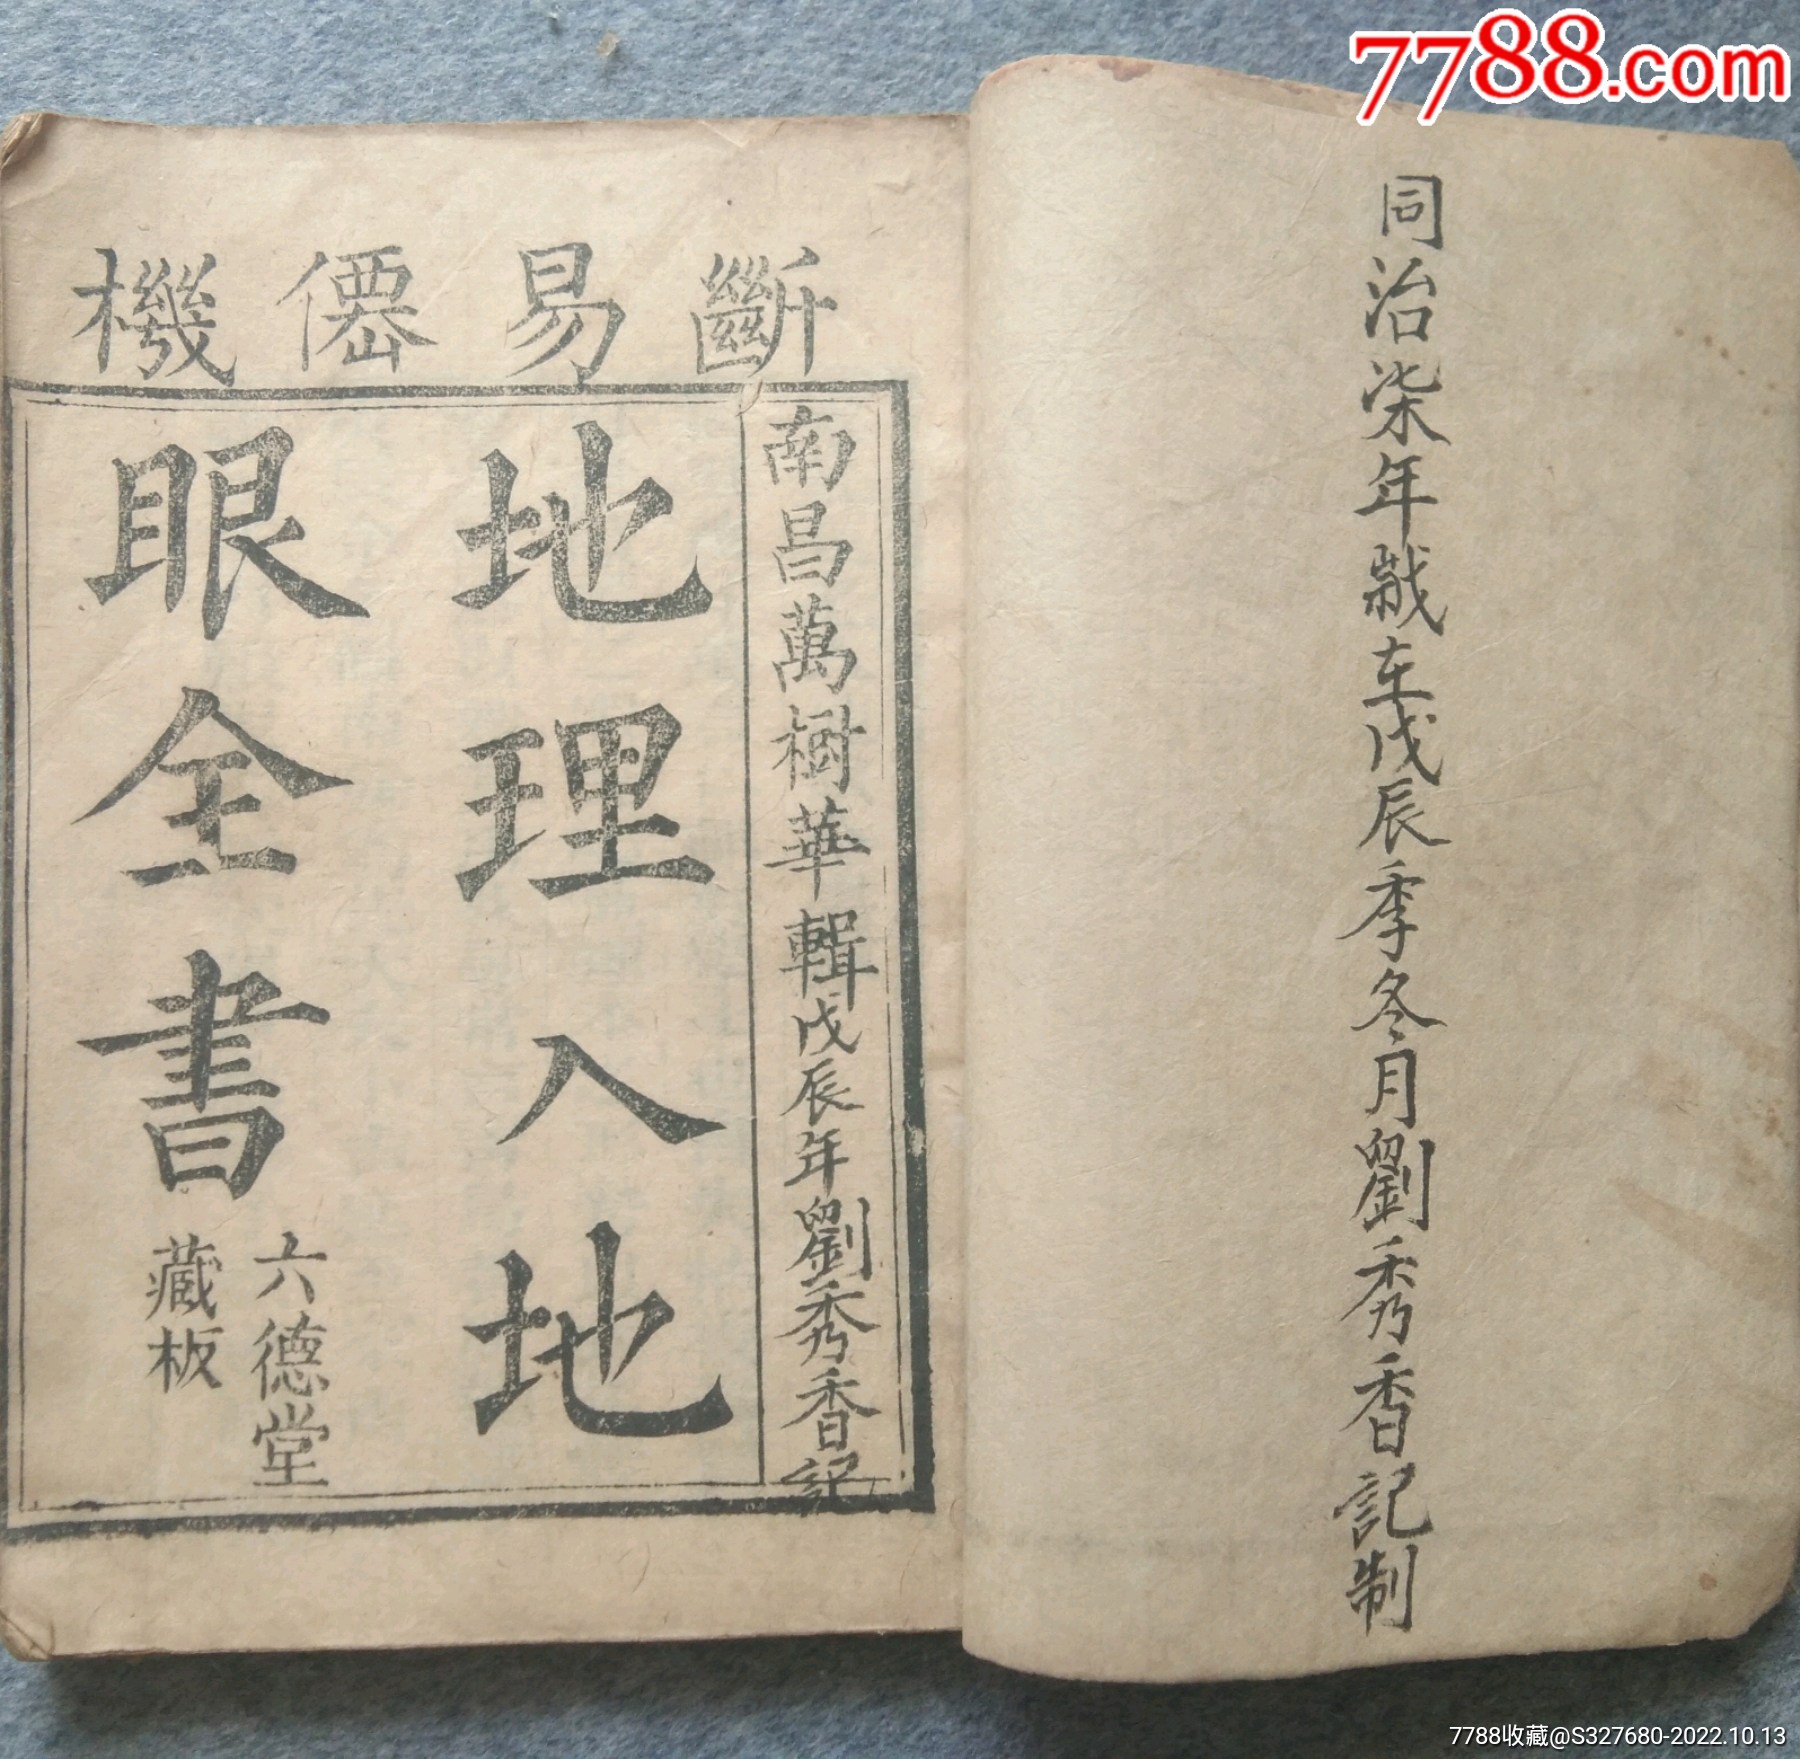 7788.com
同治柒年歲在戊辰季冬月劉秀香記制
斷易僊機
南昌萬樹華輯戊辰年劉秀香記
地理入地
眼全書
六德堂
藏板
7788收藏@S327680-2022.10.13